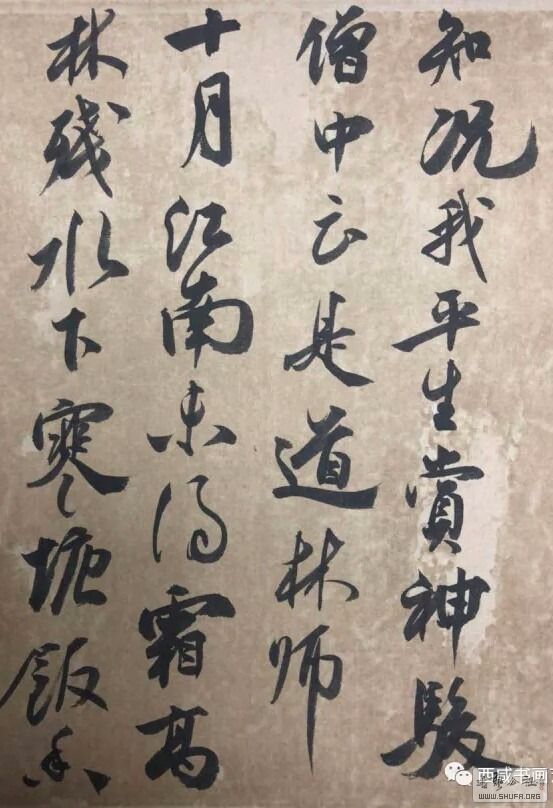 知况我平生賞神駿
僧中云是道林师
十月江南未得霜高
林残水下寒塘飯香
西咸书画
WWW.SHUFA.ORG